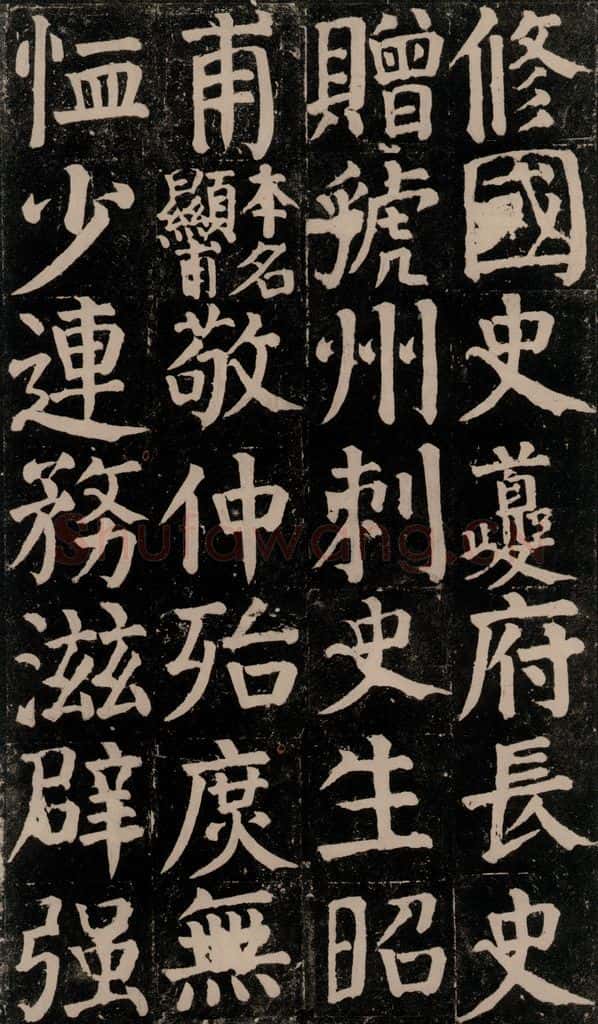 修國史夔府長史
贈虢州刺史生昭
甫本名顯甫敬仲殆庶無
恤少連務滋辟强
Shufawang.cn